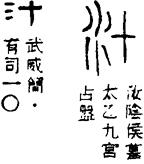 汁
汁
武威簡·
有司一〇
汝陰侯墓
太乙九宮
占盤